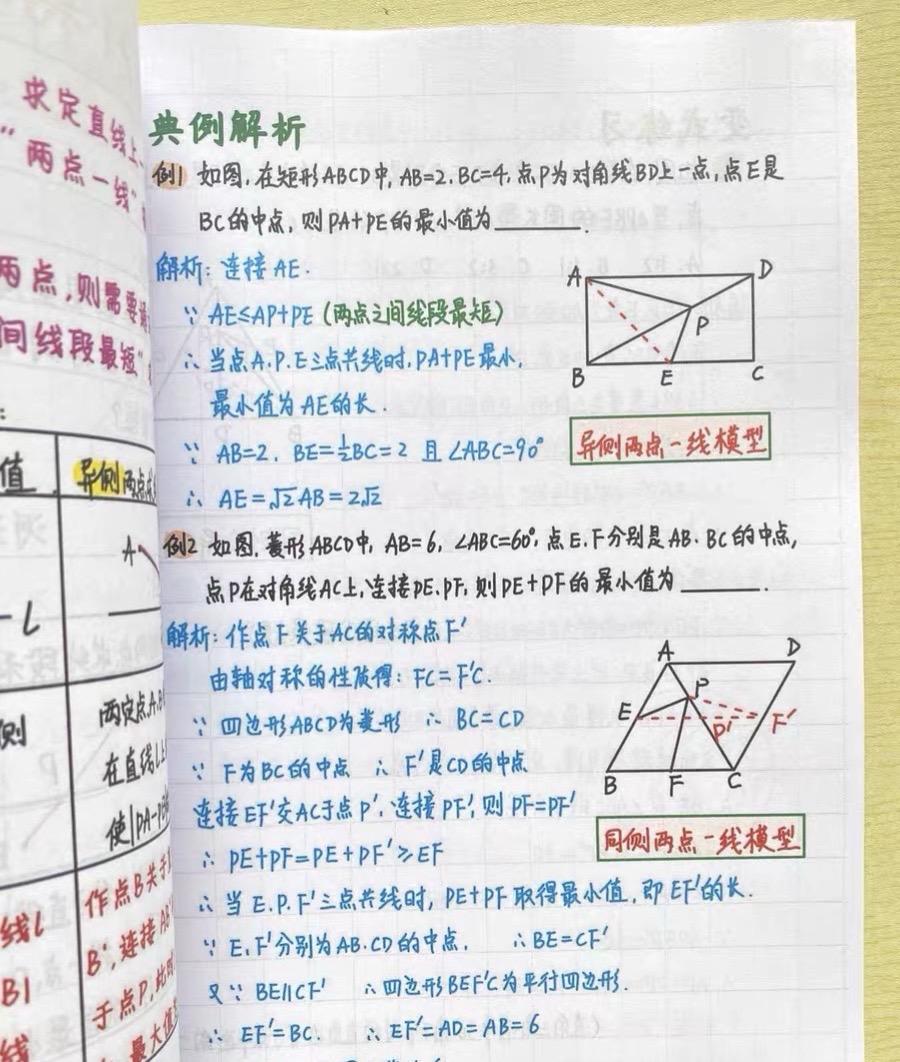 求定直线上
“两点一线”
两点,则需要
间线段最短”
值
异侧两点
A
L
侧
两定点A.B
在直线L上
使|PA-P
线L
作点B关于
B′,连接AB′
B1
于点P,此时
线
最大值
典例解析
例1 如图,在矩形ABCD中,AB=2,BC=4,点P为对角线BD上一点,点E是
BC的中点,则PA+PE的最小值为________.
解析:连接AE.
∵ AE≤AP+PE(两点之间线段最短)
∴ 当点A.P.E三点共线时,PA+PE最小,
最小值为AE的长.
∵ AB=2, BE=½BC=2 且∠ABC=90°
∴ AE=√2AB=2√2
A
D
P
B
E
C
异侧两点一线模型
例2 如图,菱形ABCD中,AB=6,∠ABC=60°,点E.F分别是AB.BC的中点,
点P在对角线AC上,连接PE.PF,则PE+PF的最小值为________.
解析:作点F关于AC的对称点F′
由轴对称的性质得:FC=F′C.
∵ 四边形ABCD为菱形 ∴ BC=CD
∵ F为BC的中点 ∴ F′是CD的中点
连接EF′交AC于点P′,连接PF′,则PF=PF′
∴ PE+PF=PE+PF′≥EF
∴ 当E.P.F′三点共线时,PE+PF取得最小值,即EF′的长.
∵ E,F′分别为AB.CD的中点, ∴BE=CF′
又∵ BE∥CF′ ∴四边形BEF′C为平行四边形.
∴ EF′=BC. ∴EF′=AD=AB=6
A
D
P
E
P′
F′
B
F
C
同侧两点一线模型